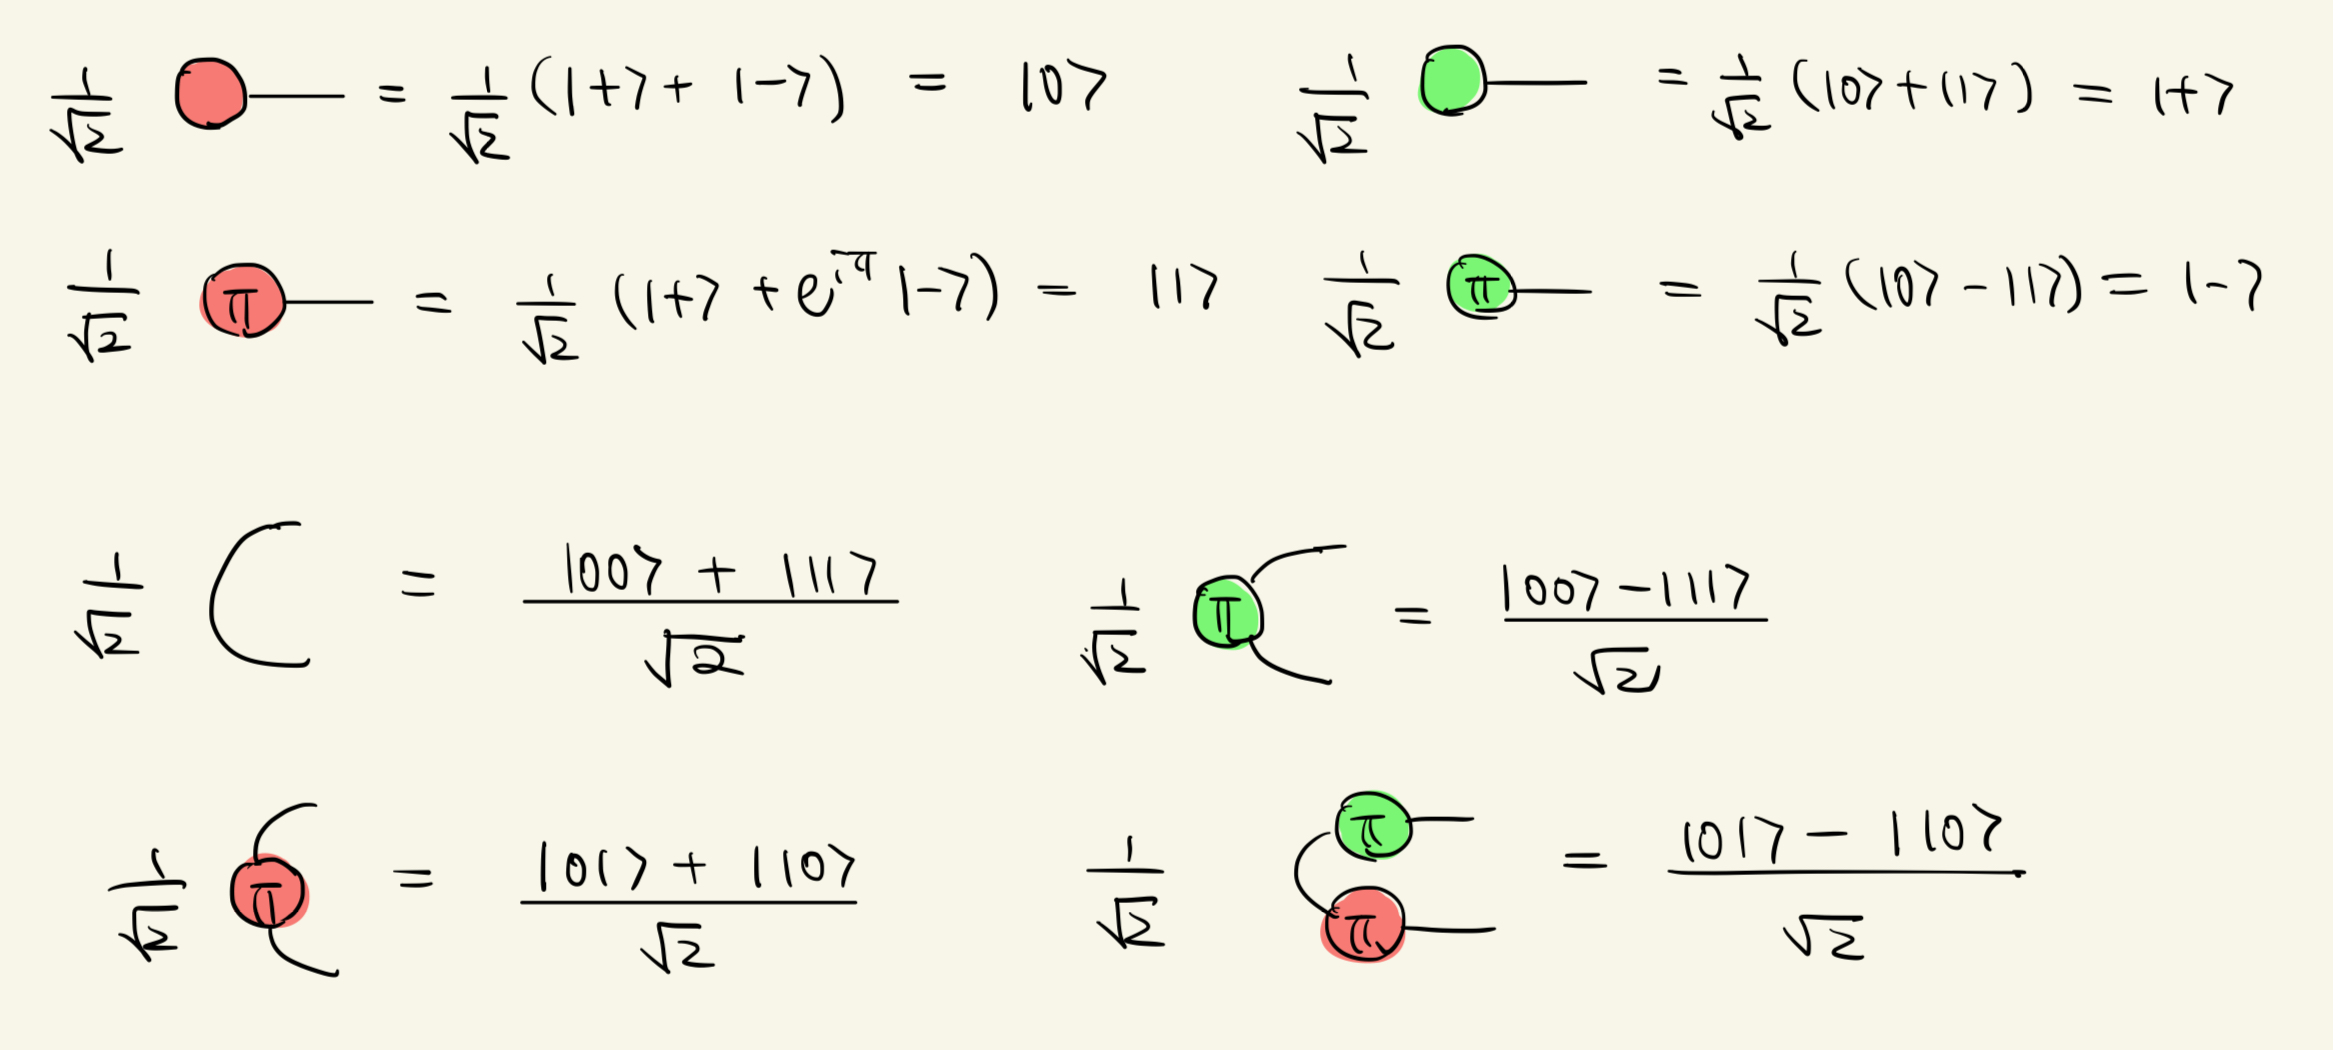 1/√2 = 1/√2 (|+⟩ + |−⟩) = |0⟩ 1/√2 = 1/√2 (|0⟩ + |1⟩) = |+⟩
1/√2 π = 1/√2 (|+⟩ + e^{iπ} |−⟩) = |1⟩ 1/√2 π = 1/√2 (|0⟩ − |1⟩) = |−⟩
1/√2 = |00⟩ + |11⟩ / √2 1/√2 π = |00⟩ − |11⟩ / √2
1/√2 π = |01⟩ + |10⟩ / √2 1/√2 π π = |01⟩ − |10⟩ / √2